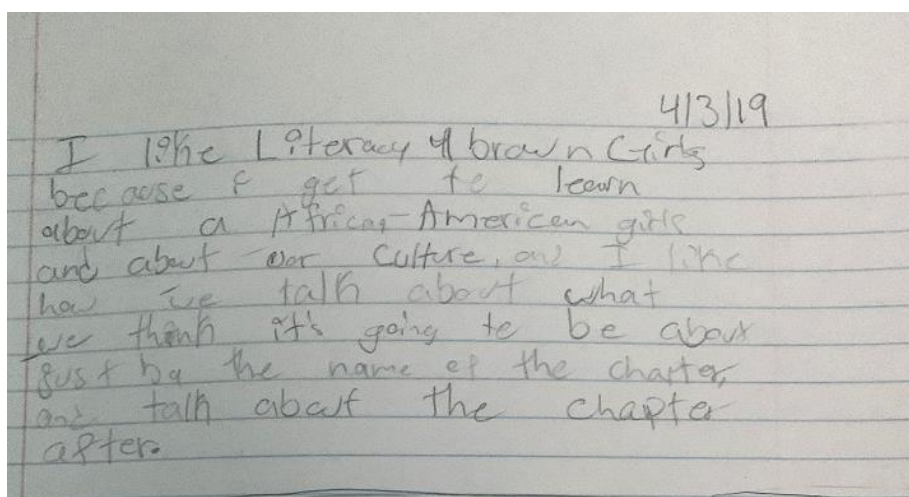 4/3/19
I like Literacy 4 brown Girls
because I get to learn
about a African-American girls
and about our Culture, and I like
how we talk about what
we think it's going to be about
just by the name of the chapter,
and talk about the chapter
after.